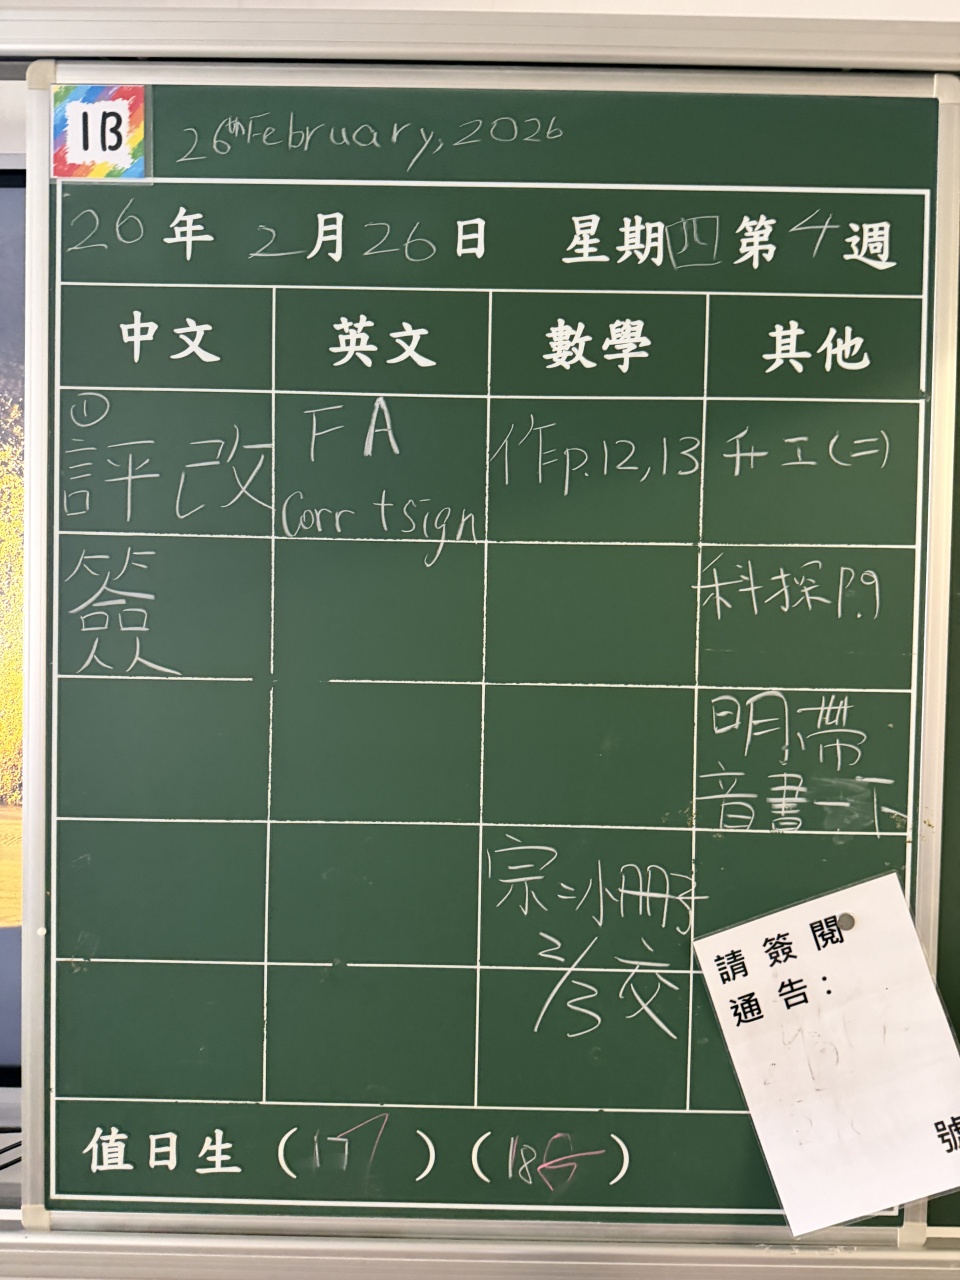 1B
26th February, 2026
26年2月26日 星期四第4週
中文 英文 數學 其他
①
評改
簽
FA
Corr + sign
作p.12,13
宗=小冊子
2/3 交
升工(二)
科探P.9
明帶
音書一下
請簽閱
通告：
號
值日生 (17) (18)